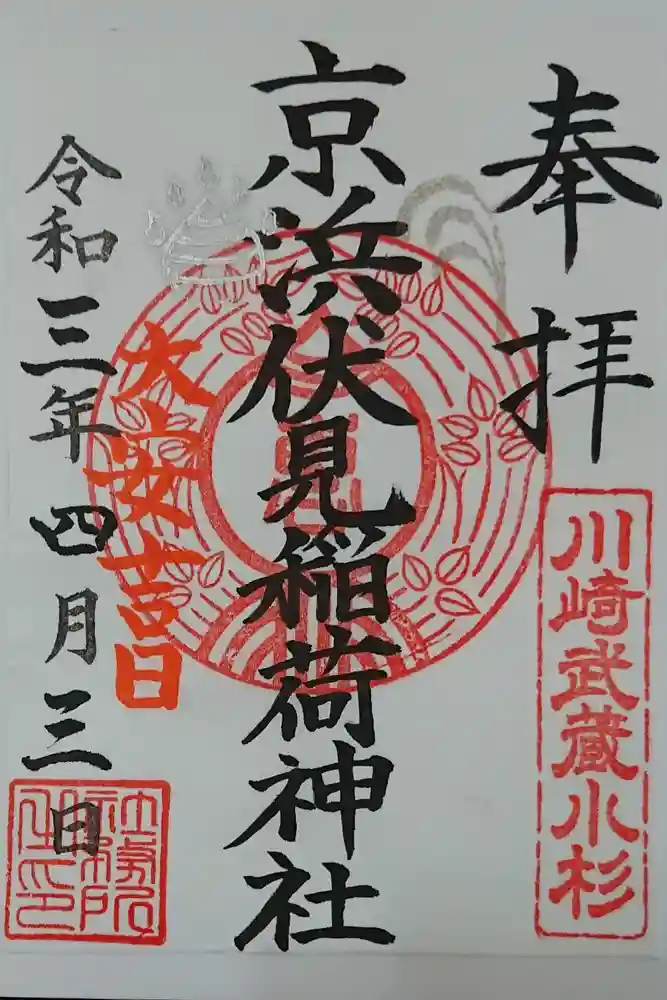 奉拝
川崎武蔵小杉
京浜伏見稲荷神社
大安吉日
令和三年四月三日
社務所